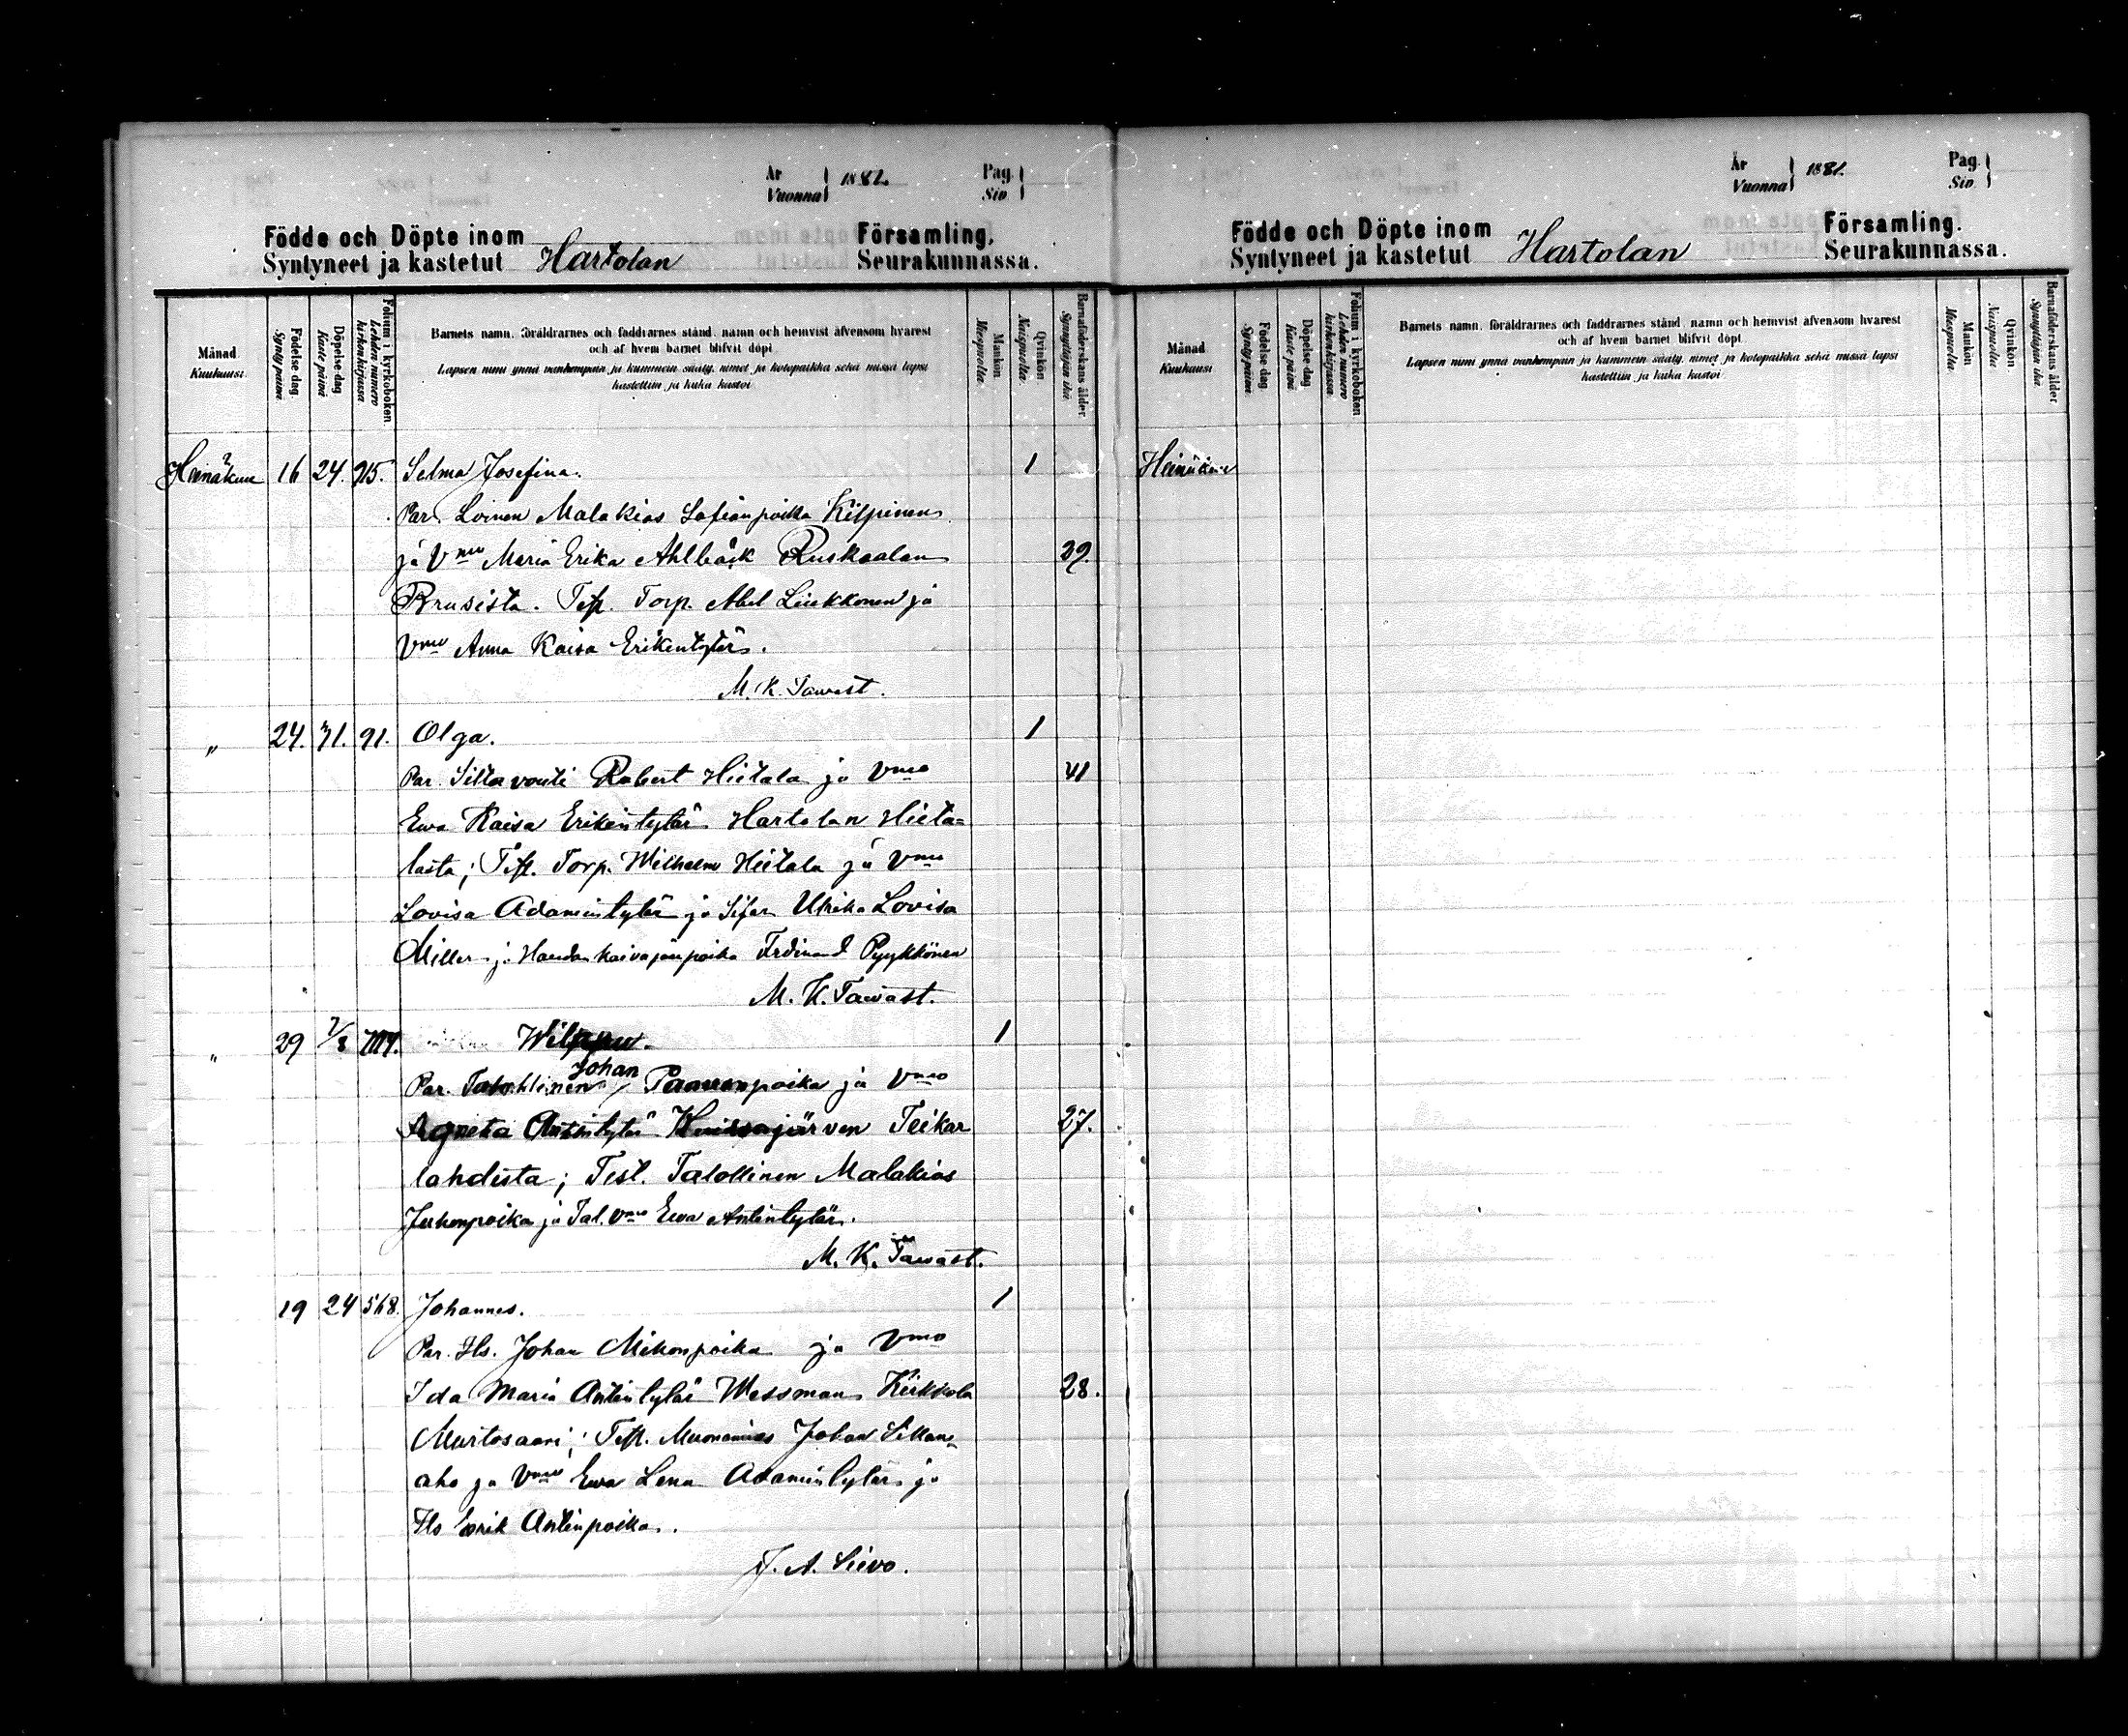 År Vuonna 1881. Pag. Siv.
Födde och Döpte inom Församling.
Syntyneet ja kastetut Hartolan Seurakunnassa.
Månad. Kuukausi.
Födelse dag. Syntypäinä.
Döpelse dag. Kaste päinä.
Folium i kyrkoboken. Lehden numero kirkonkirjassa.
Barnets namn, föräldrarnes och faddrarnes stånd, namn och hemvist äfvensom hvarest
och af hvem barnet blifvit döpt.
Lapsen nimi ynnä vanhempain ja kummein sääty, nimet ja kotopaikka sekä missä lapsi
kastettiin ja kuka kastoi
Mankön Miespuolia.
Qvinkön Naispuolia.
Barnaföderskans ålder. Synnyttäjän ikä.
Heinäkuu 16 24. 915. Selma Josefina. 1
Par. Loinen Malakias Kilpinen
ja Vmo Maria Erika Ahlbäck Ruskealan 39.
Prusista. Test. Torp. Abel Liukkonen ja
Vmo Anna Kaisa Erikintytär.
M. K. Tawast.
" 24. 31. 91. Olga. 1
Par. Siltavouti Robert Hietala ja Vmo 41
Ewa Kaisa Erikintytär Hartolan Hieta=
lasta; Test. Torp. Wilhelm Hietala ja Vmo
Lovisa Adamintytär ja Ulrika Lovisa
Miller ja Haudankaivajanpoika Ferdinand Pyykkönen
M. K. Tawast.
" 29 7/8 Wilppu. 1
Par. Talollinen Johan Paavonpoika ja Vmo
Agneta Antintytär järven Teikar 27.
lahdista; Test. Talollinen Malakias
Juhonpoika ja Tal. Vmo Ewa Antintytär.
M. K. Tawast.
19 24 568. Johannes. 1
Par. Its. Johan Mikonpoika ja Vmo
Ida Maria Antintytär Wessman Kirkkola 28.
Murtosaari; Test. Muonamies Johan Sillan=
aho ja Vmo Ewa Lena Adamintytär ja
Its Erik Antinpoika.
J. A. Sievo.
År Vuonna 1881. Pag. Siv.
Födde och Döpte inom Församling.
Syntyneet ja kastetut Hartolan Seurakunnassa.
Månad Kuukausi
Födelse dag. Syntypäinä.
Döpelse dag. Kaste päinä
Folium i kyrkoboken. Lehden numero kirkonkirjassa.
Barnets namn, föräldrarnes och faddrarnes stånd, namn och hemvist äfvensom hvarest
och af hvem barnet blifvit döpt.
Lapsen nimi ynnä vanhempain ja kummein sääty, nimet ja kotopaikka sekä missä lapsi
kastettiin ja kuka kastoi
Mankön Miespuolia.
Qvinkön. Naispuolia.
Barnaföderskans ålder Synnyttäjän ikä.
Heinäkuu